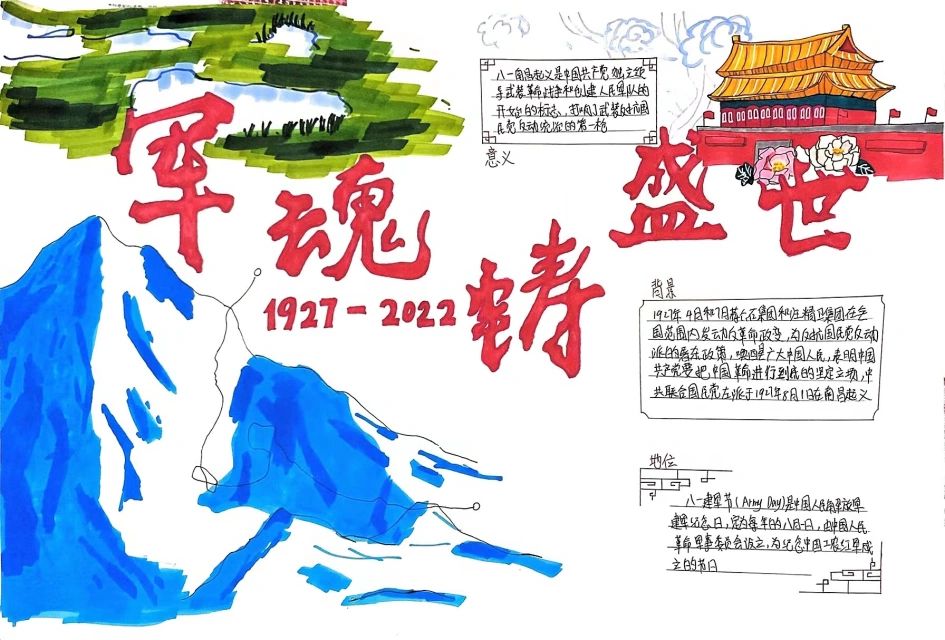 军魂铸盛世
1927-2022
八一南昌起义是中国共产党独立领
导武装革命战争和创建人民军队的
开始的标志，打响了武装反抗国
民党反动统治的第一枪
意义
背景
1927年4月和7月蒋介石集团和汪精卫集团在全
国范围内发动反革命政变，为反抗国民党反动
派的屠杀政策，唤醒广大中国人民，表明中国
共产党要把中国革命进行到底的坚定立场，中
共联合国民党左派于1927年8月1日在南昌起义
地位
八一建军节（Army Day）是中国人民解放军
建军纪念日，定为每年的八月一日，由中国人民
革命军事委员会设立，为纪念中国工农红军成
立的节日